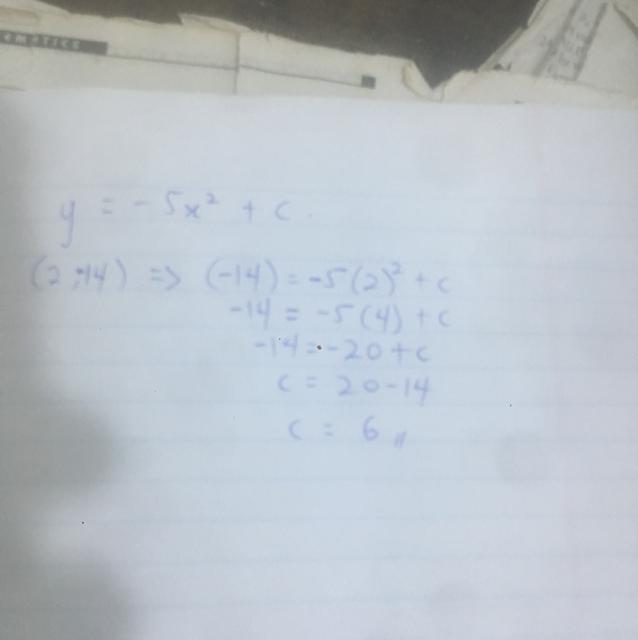 y = -5x² + c.
(2,-14) => (-14) = -5(2)² + c
-14 = -5(4) + c
-14 = -20 + c
c = 20 - 14
c = 6 //